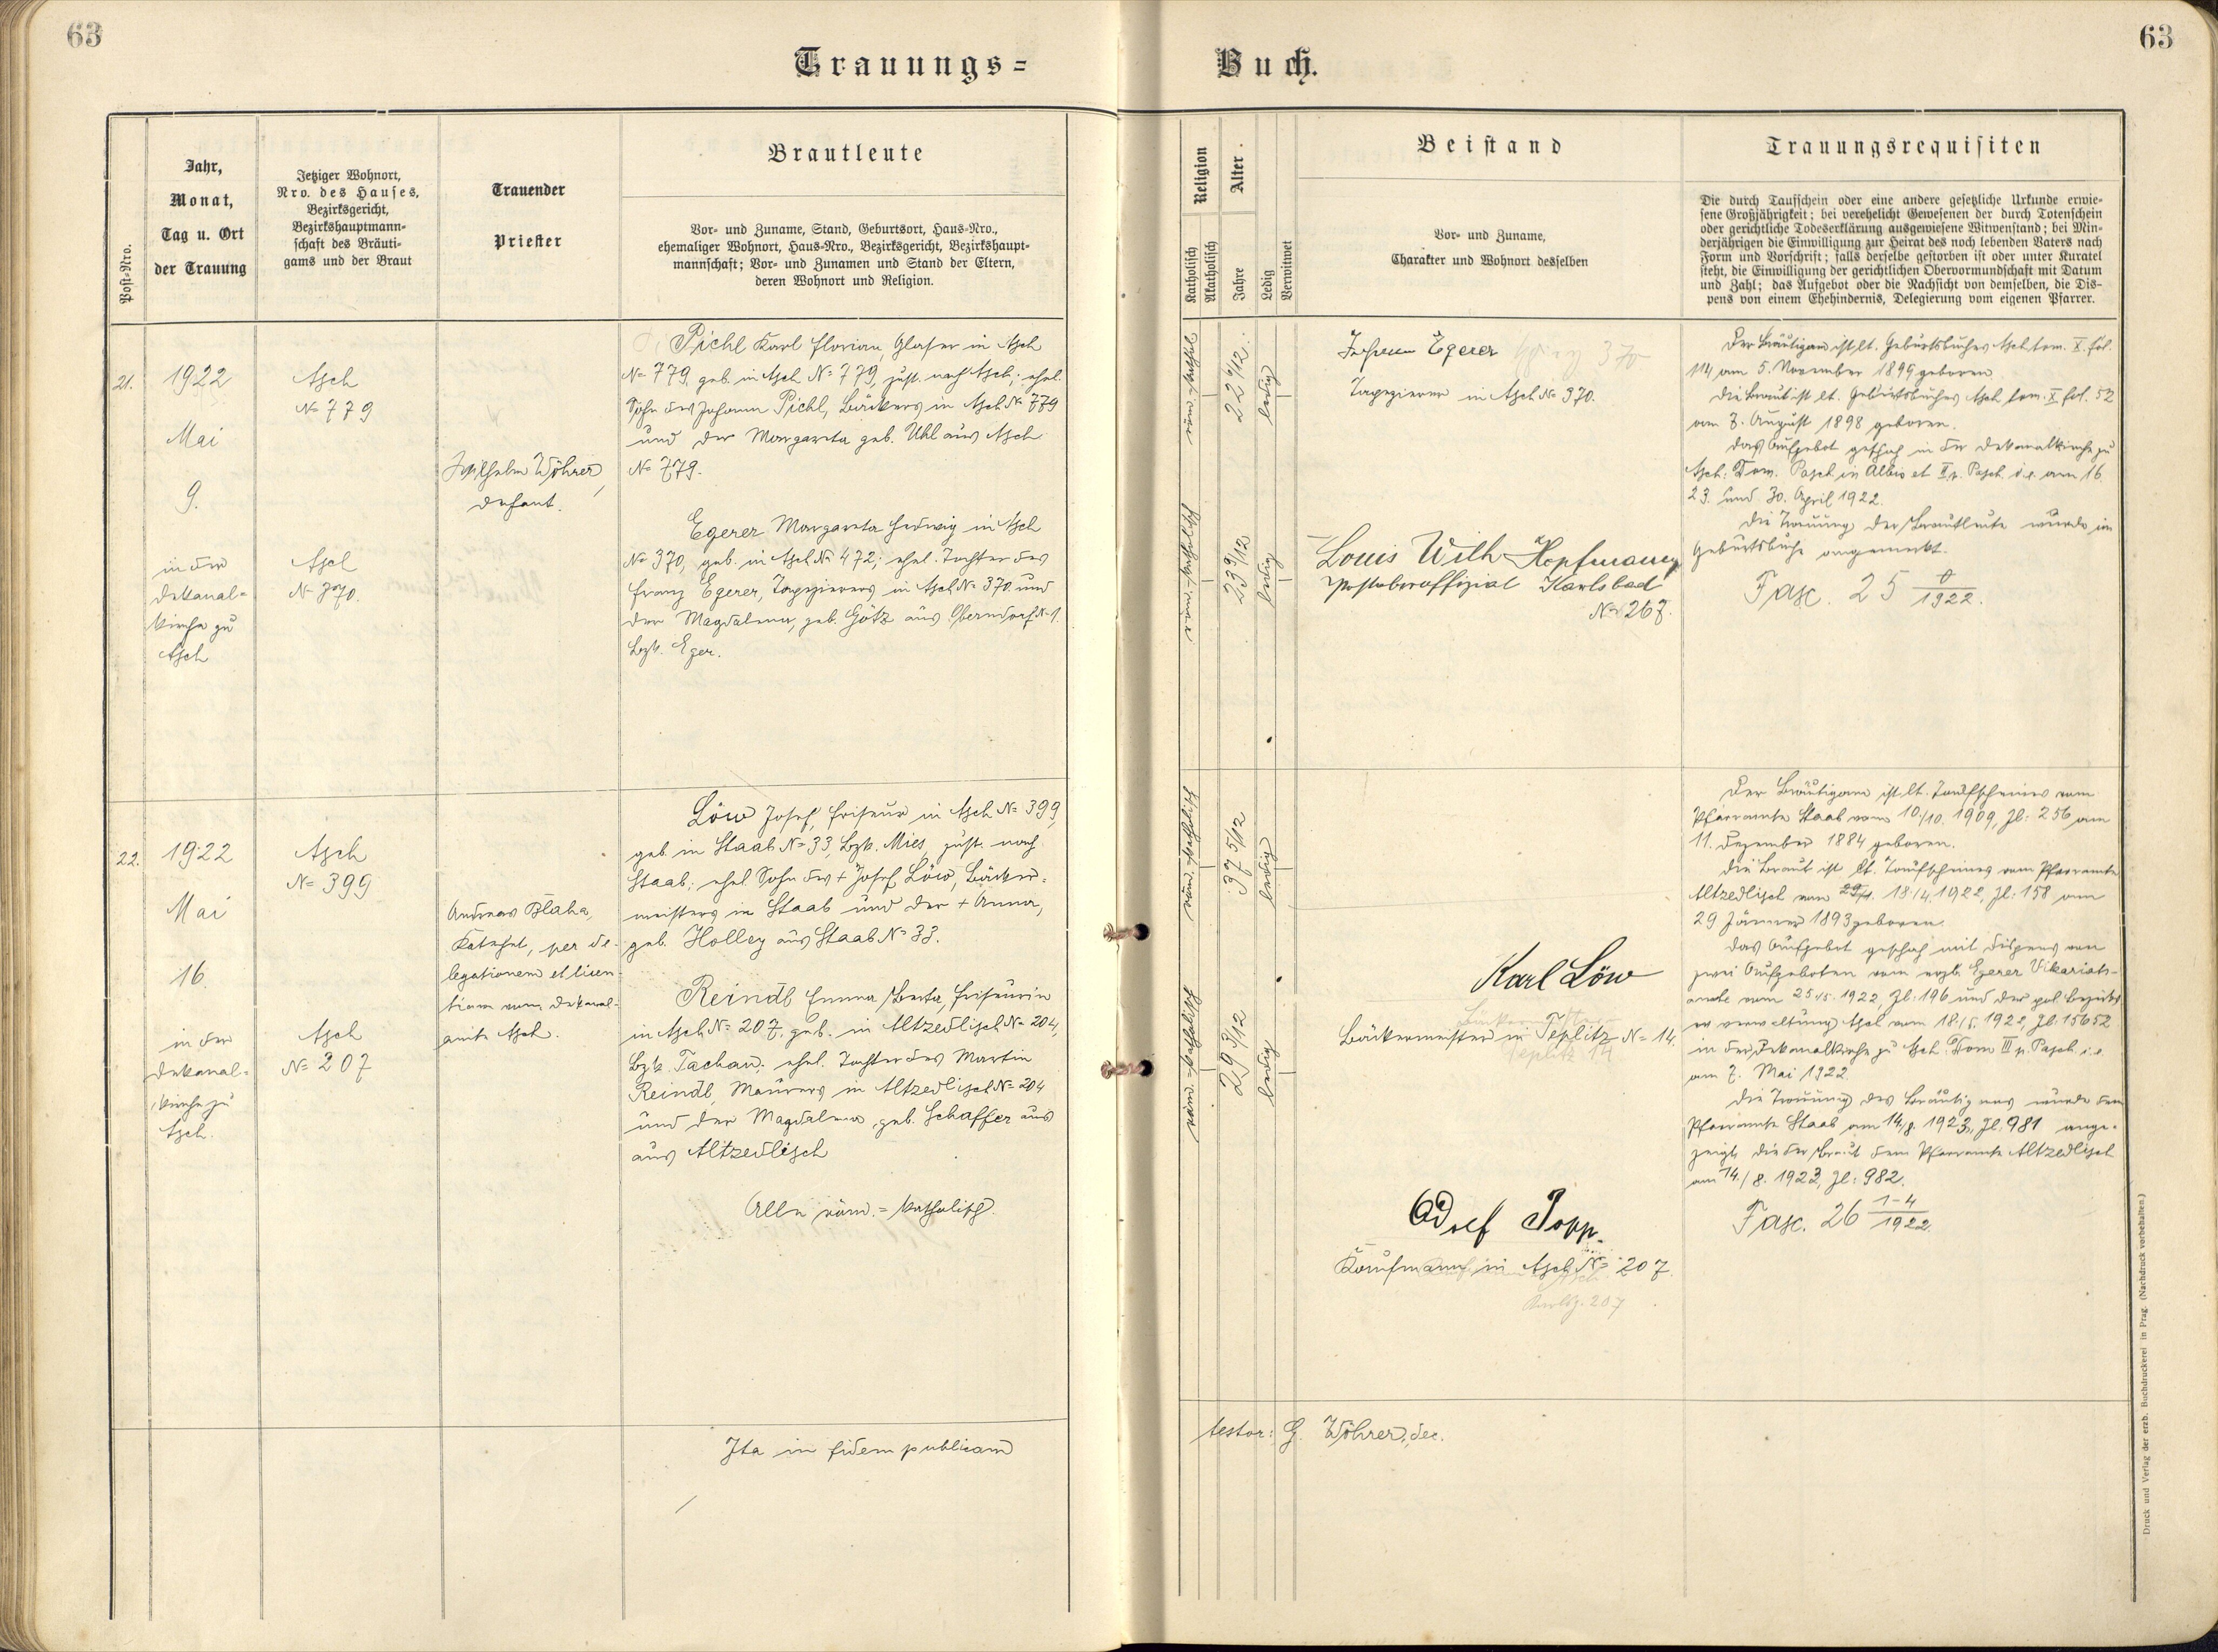 63
63
Trauungs=
Buch.
Post-Nro.
Jahr,
Monat,
Tag u. Ort
der Trauung
Jetziger Wohnort,
Nro. des Hauses,
Bezirksgericht,
Bezirkshauptmann-
schaft des Bräuti-
gams und der Braut
Trauender
Priester
Brautleute
Vor- und Zuname, Stand, Geburtsort, Haus-Nro.,
ehemaliger Wohnort, Haus-Nro., Bezirksgericht, Bezirkshaupt-
mannschaft; Vor- und Zunamen und Stand der Eltern,
deren Wohnort und Religion.
Religion
Katholisch
Akatholisch
Alter.
Jahre
Ledig
Verwitwet
Beistand
Vor- und Zuname,
Charakter und Wohnort desselben
Trauungsrequisiten
Die durch Taufschein oder eine andere gesetzliche Urkunde erwie-
sene Großjährigkeit; bei verehelicht Gewesenen der durch Totenschein
oder gerichtliche Todeserklärung ausgewiesene Witwenstand; bei Min-
derjährigen die Einwilligung zur Heirat des noch lebenden Vaters nach
Form und Vorschrift; falls derselbe gestorben ist oder unter Kuratel
steht, die Einwilligung der gerichtlichen Obervormundschaft mit Datum
und Zahl; das Aufgebot oder die Nachsicht von demselben, die Dis-
pens von einem Ehehindernis, Delegierung vom eigenen Pfarrer.
21.
1922
Mai
9.
in der
Dekanal=
kirche zu
Asch
Asch
N= 779
Asch
N= 370.
Wilhelm Wöhrer,
Dechant.
Pichl Karl Florian, Glaser in Asch
N= 779, geb. in Asch N= 779, zust. nach Asch; ehel.
Sohn des Johann Pichl, Bäckers in Asch N= 779
und der Margareta geb. Uhl aus Asch
N= 779.
Egerer Margareta Hedwig in Asch
N= 370, geb. in Asch N= 472; ehel. Tochter des
Franz Egerer, Tapezierers in Asch N= 370 und
der Magdalena, geb. Götz aus Oberndorf N= 1.
Bzk. Eger.
röm.-kathol.
22 6/12.
ledig
röm.-katholisch
23 9/12
ledig
Egerer
Tapezierer in Asch N= 370.
Louis Wilh Hopfmann
Postoberoffizial Karlsbad
N= 267.
Der Bräutigam ist lt. Geburtsbuches Asch tom. X. fol.
114 am 5. November 1899 geboren.
Die Braut ist lt. Geburtsbuches Asch tom. X fol. 52
am 7. August 1898 geboren.
Das Aufgebot geschah in der Dekanalkirche zu
Asch: Dom. Pasch. in Albis et II p. Pasch. i.e. am 16.
23. und 30. April 1922.
Die Trauung der Brautleute wurde im
Geburtsbuche angemerkt.
Fasc. 25 0/1922.
22.
1922
Mai
16.
in der
Dekanal=
kirche zu
Asch.
Asch
N= 399
Asch
N= 207
Andreas Blaha,
Katechet, per de-
legationem et licen-
tiam vom Dekanal-
amte Asch.
Löw Josef, Friseur in Asch N= 399,
geb. in Staab N= 33, Bzk. Mies, zust. nach
Staab; ehel. Sohn des + Josef Löw, Bäcker=
meisters in Staab und der + Anna,
geb. Holley aus Staab N= 33.
Reindl Emma Berta, Friseurin
in Asch N= 207, geb. in Altzedlisch N= 204,
Bzk. Tachau; ehel. Tochter des Martin
Reindl, Maurers in Altzedlisch N= 204
und der Magdalena, geb. Schaffer aus
aus Altzedlisch
Alle röm.=katholisch.
röm.-katholisch
37 5/12
ledig
röm.=katholisch
29 3/12
ledig
Karl Löw
Bäckermeister in Teplitz N= 14.
Teplitz 14
Adolf Popp.
Kaufmann in Asch N= 207.
Der Bräutigam ist lt. Taufscheines vom
Pfarramte Staab vom 10./10. 1909, Zl: 256 am
11. Dezember 1884 geboren.
Die Braut ist lt. Taufscheines vom Pfarramte
Altzedlisch vom 18./4. 1922, Zl: 158 am
29 Jänner 1893 geboren.
Das Aufgebot geschah mit Dispens von
zwei Aufgeboten vom erzb. Egerer Vikariats-
amte vom 25./5. 1922, Zl: 196 und der pol. Bezirks
verwaltung Asch vom 18./5. 1922, Zl: 15652
in der Dekanalkirche zu Asch: Dom III p. Pasch. i.e.
am 7. Mai 1922.
Die Trauung des Bräutigams wurde dem
Pfarramte Staab am 14./8. 1923, Zl. 981 ange-
zeigt, die der Braut dem Pfarramte Altzedlisch
am 14./8. 1923, Zl: 982.
Fasc. 26 1-4/1922.
Ita in fidem publicam
testor: G. Wöhrer, dec.
Druck und Verlag der erzb. Buchdruckerei in Prag. (Nachdruck vorbehalten.)